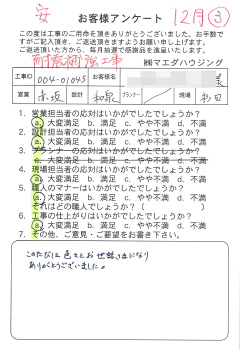 安 お客様アンケート 12月(3)
この度は工事のご用命を頂きありがとうございました。お手数で
すがご記入頂き、ご返送頂きますようお願い申し上げます。
ご返送頂いた方から、毎月抽選で感謝品を進呈いたします。
耐震補強工事 ㈱マエダハウジング
工事ID 004-01045 お客様名
営業 赤坂 設計 和泉 プランナー 現場 杉田
1. 営業担当者の応対はいかがでしたでしょうか?
a. 大変満足 b. 満足 c. やや不満 d. 不満
2. 設計担当者の応対はいかがでしたでしょうか?
a. 大変満足 b. 満足 c. やや不満 d. 不満
3. プランナーの応対はいかがでしたでしょうか?
a. 大変満足 b. 満足 c. やや不満 d. 不満
4. 現場担当者の応対はいかがでしたでしょうか?
a. 大変満足 b. 満足 c. やや不満 d. 不満
5. 職人のマナーはいかがでしたでしょうか?
a. 大変満足 b. 満足 c. やや不満 d. 不満
それはどの職人でしょうか?( )
6. 工事の仕上がりはいかがでしたでしょうか?
a. 大変満足 b. 満足 c. やや不満 d. 不満
7. その他、ご意見・ご要望をお書き下さい。
このたびは色々とお世話になり
ありがとうございました。